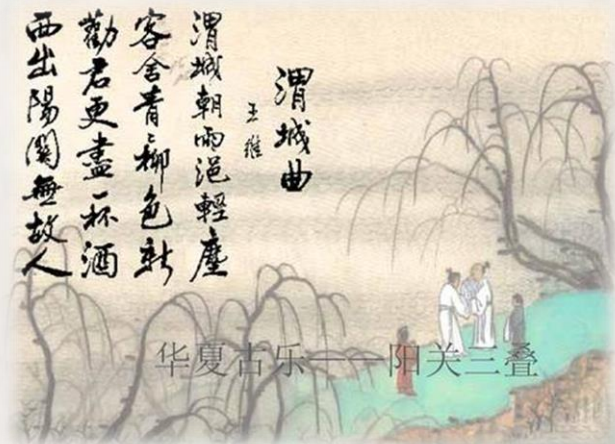 渭城曲
王維
渭城朝雨浥輕塵
客舍青〻柳色新
勸君更盡一杯酒
西出陽關無故人
华夏古乐——阳关三叠